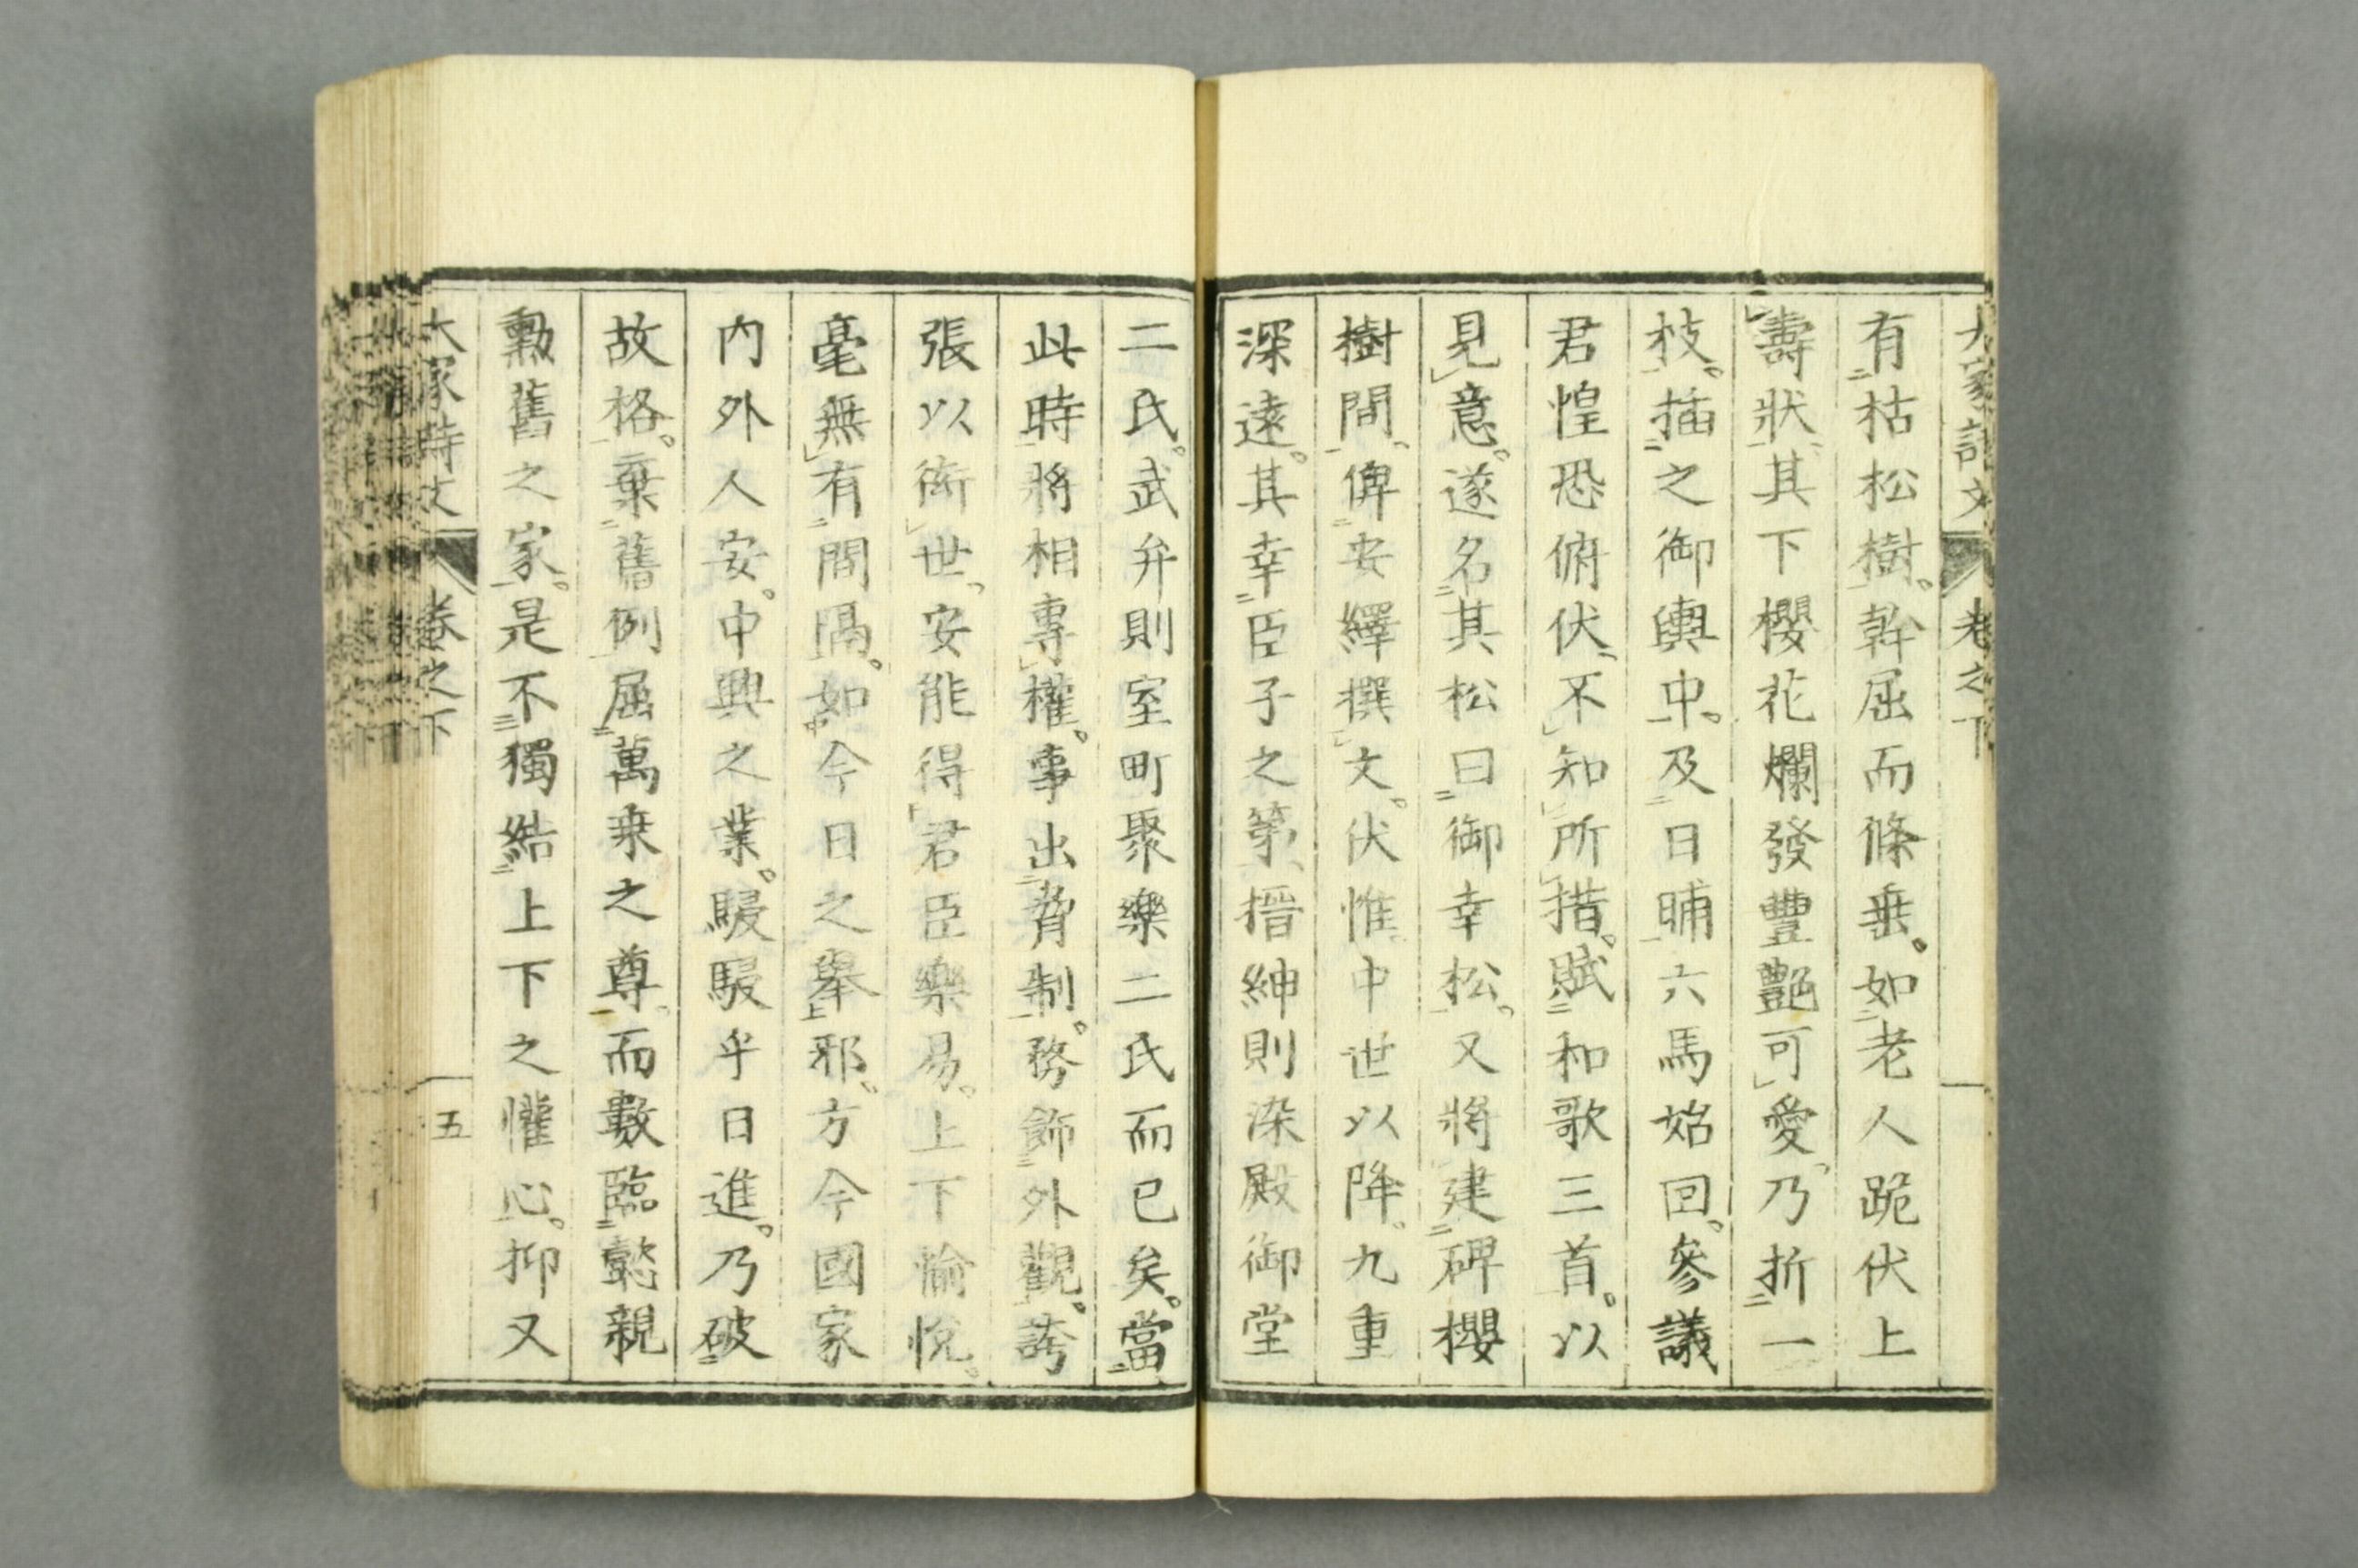 有枯松樹。幹屈而條垂。如老人跪伏上
壽狀。其下櫻花爛發豐艷可愛。乃折一
枝。插之御輿中。及日晡六馬始回。參議
君惶恐俯伏不知所措。賦和歌三首。以
見意。遂名其松曰御幸松。又將建碑櫻
樹間。俾安繹撰文。伏惟中世以降。九重
深遠。其幸臣子之第、搢紳則染殿御堂
二氏。武弁則室町聚樂二氏而已矣。當
此時將相專權。事出脅制。務飾外觀。誇
張以衒世。安能得君臣樂易。上下愉悅。
毫無有間隔。如今日之舉邪。方今國家
內外人安。中興之業。駸駸乎日進。乃破
故格。棄舊例屈萬乘之尊。而數臨懿親
勳舊之家。是不獨結上下之懽心。抑又
大家時文 卷之下 五